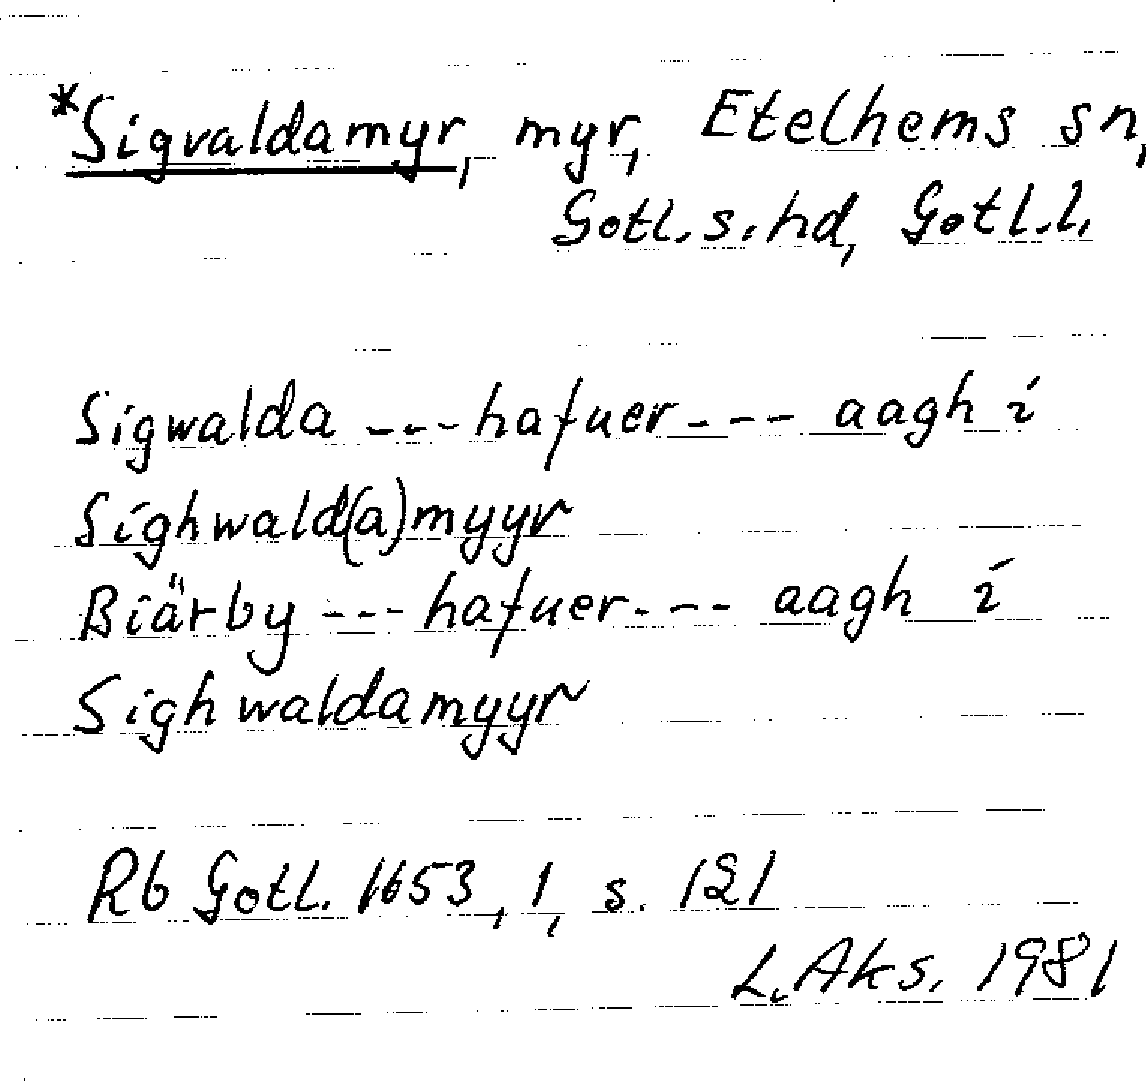 *Sigvaldamyr, myr, Etelhems sn,
Gotl. s. hd, Gotl. l.
Sigwalda --- hafuer --- aagh i
Sighwald(a)myyr
Biärby --- hafuer --- aagh i
Sighwaldamyyr
Rb Gotl. 1653, 1, s. 121
L. Aks. 1981